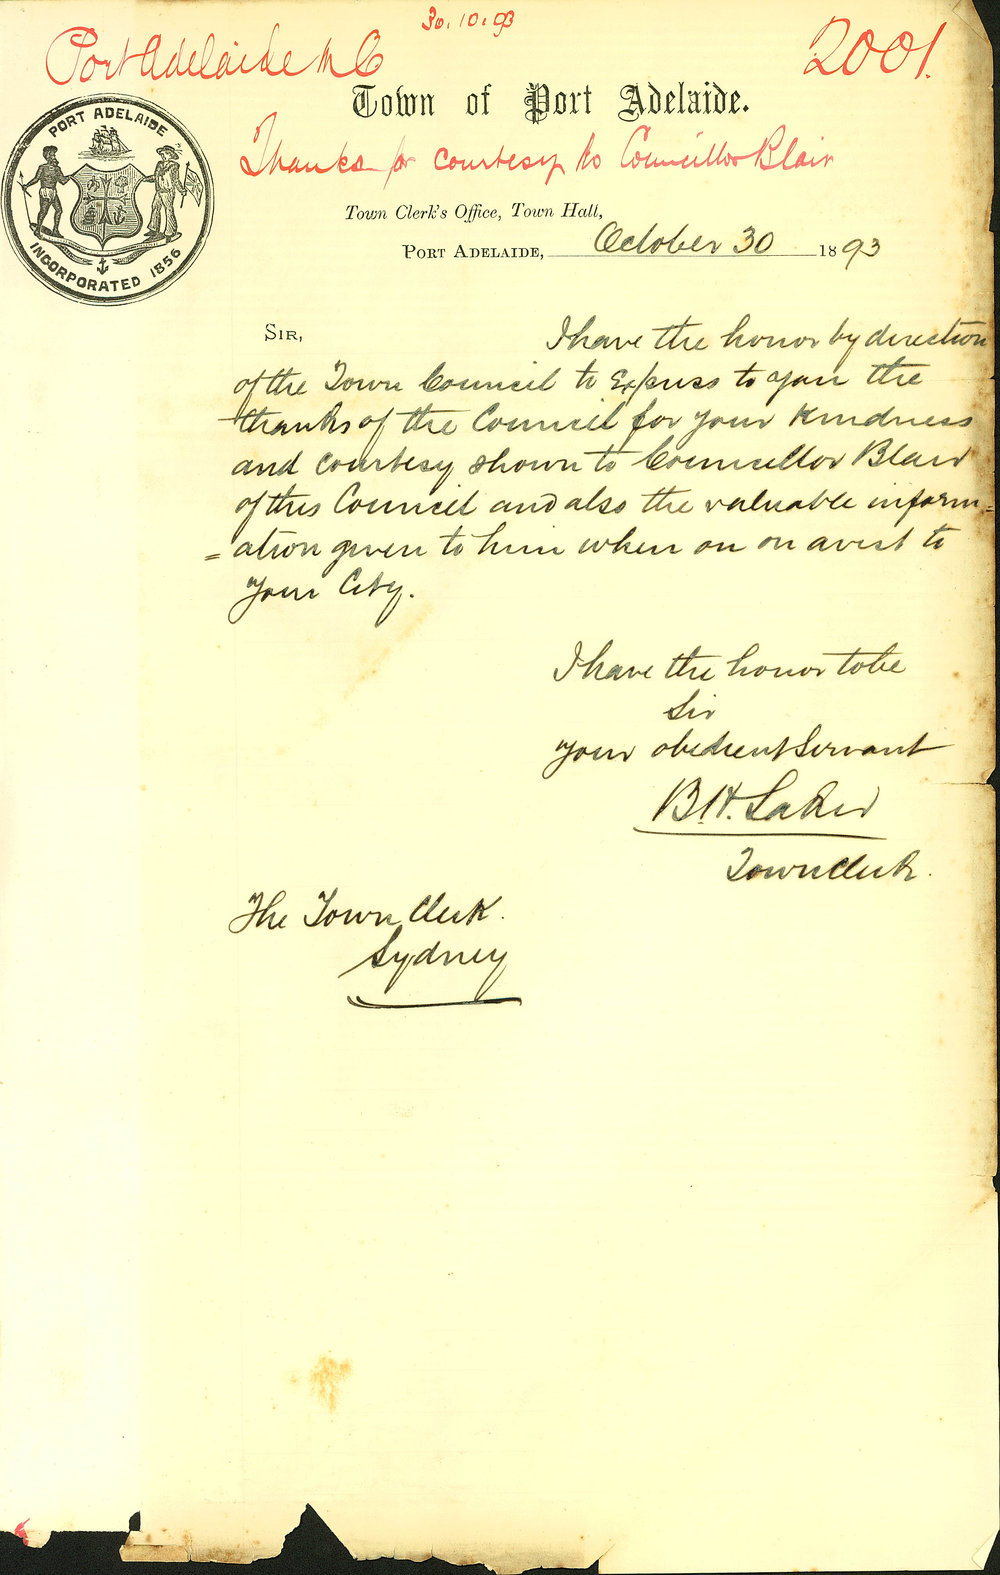 30.10.93
Port Adelaide M C
2001.
Town of Port Adelaide.
PORT ADELAIDE
INCORPORATED 1856
Thanks for courtesy to Councillor Blair
Town Clerk's Office, Town Hall,
PORT ADELAIDE, October 30 1893
SIR,
I have the honor by direction
of the Town Council to Express to you the
thanks of the Council for your kindness
and courtesy shown to Councillor Blair
of this Council and also the valuable inform=
=ation given to him when on on a visit to
your City.
I have the honor to be
Sir
your obedient Servant
B.H. Laker
Town Clerk.
The Town Clerk.
Sydney